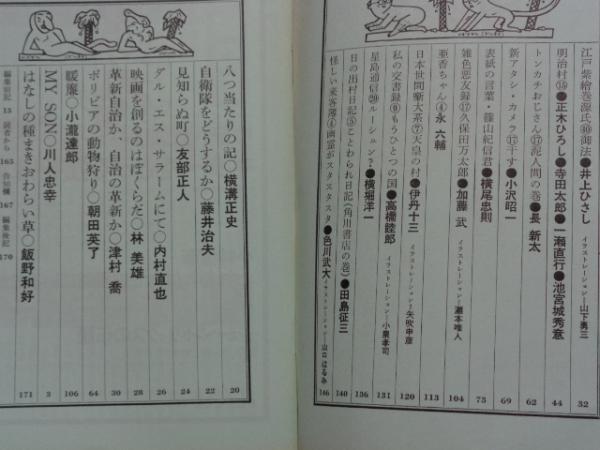 江戸紫絵巻源氏㊵御法●井上ひさし
イラストレーション—山下勇三
32
明治村⑱●正木ひろし●寺田太郎●一瀬直行●池宮城秀意
44
トンカチおじさん⑰泥人間の巻●長 新太
62
新アタシ・カメラ⑪干す●小沢昭一
69
表紙の言葉・篠山紀信君●横尾忠則
73
雑色悪友録⑰久保田万太郎●加藤 武
イラストレーション—灘本唯人
104
亜香ちゃん④永 六輔
113
日本世間噺大系⑦天皇の村●伊丹十三
イラストレーション—矢吹申彦
120
私の交書録⑨もうひとつの国●高橋睦郎
イラストレーション—小栗孝司
131
星島通信⑳ルーシュン?●横堀洋一
136
日の出村日記⑤ことわられ日記(角川書店の巻)●田島征三
140
怪しい来客簿④幽霊がスタスタスタ●色川武大
イラストレーション—山口はるみ
146
八つ当たりの記○横溝正史
20
自衛隊をどうするか○藤井治夫
22
見知らぬ町○友部正人
24
ダル・エス・サラームにて○内村直也
26
映画を創るのはぼくらだ○林 美雄
28
革新自治か、自治の革新か○津村 喬
30
ボリビアの動物狩り○朝田英了
64
暖簾○小瀧達郎
106
MY SON○川人忠幸
3
はなしの種まきおわらい草○飯野和好
171
編集前記 13 読者から 165 告知欄 167 編集後記 170